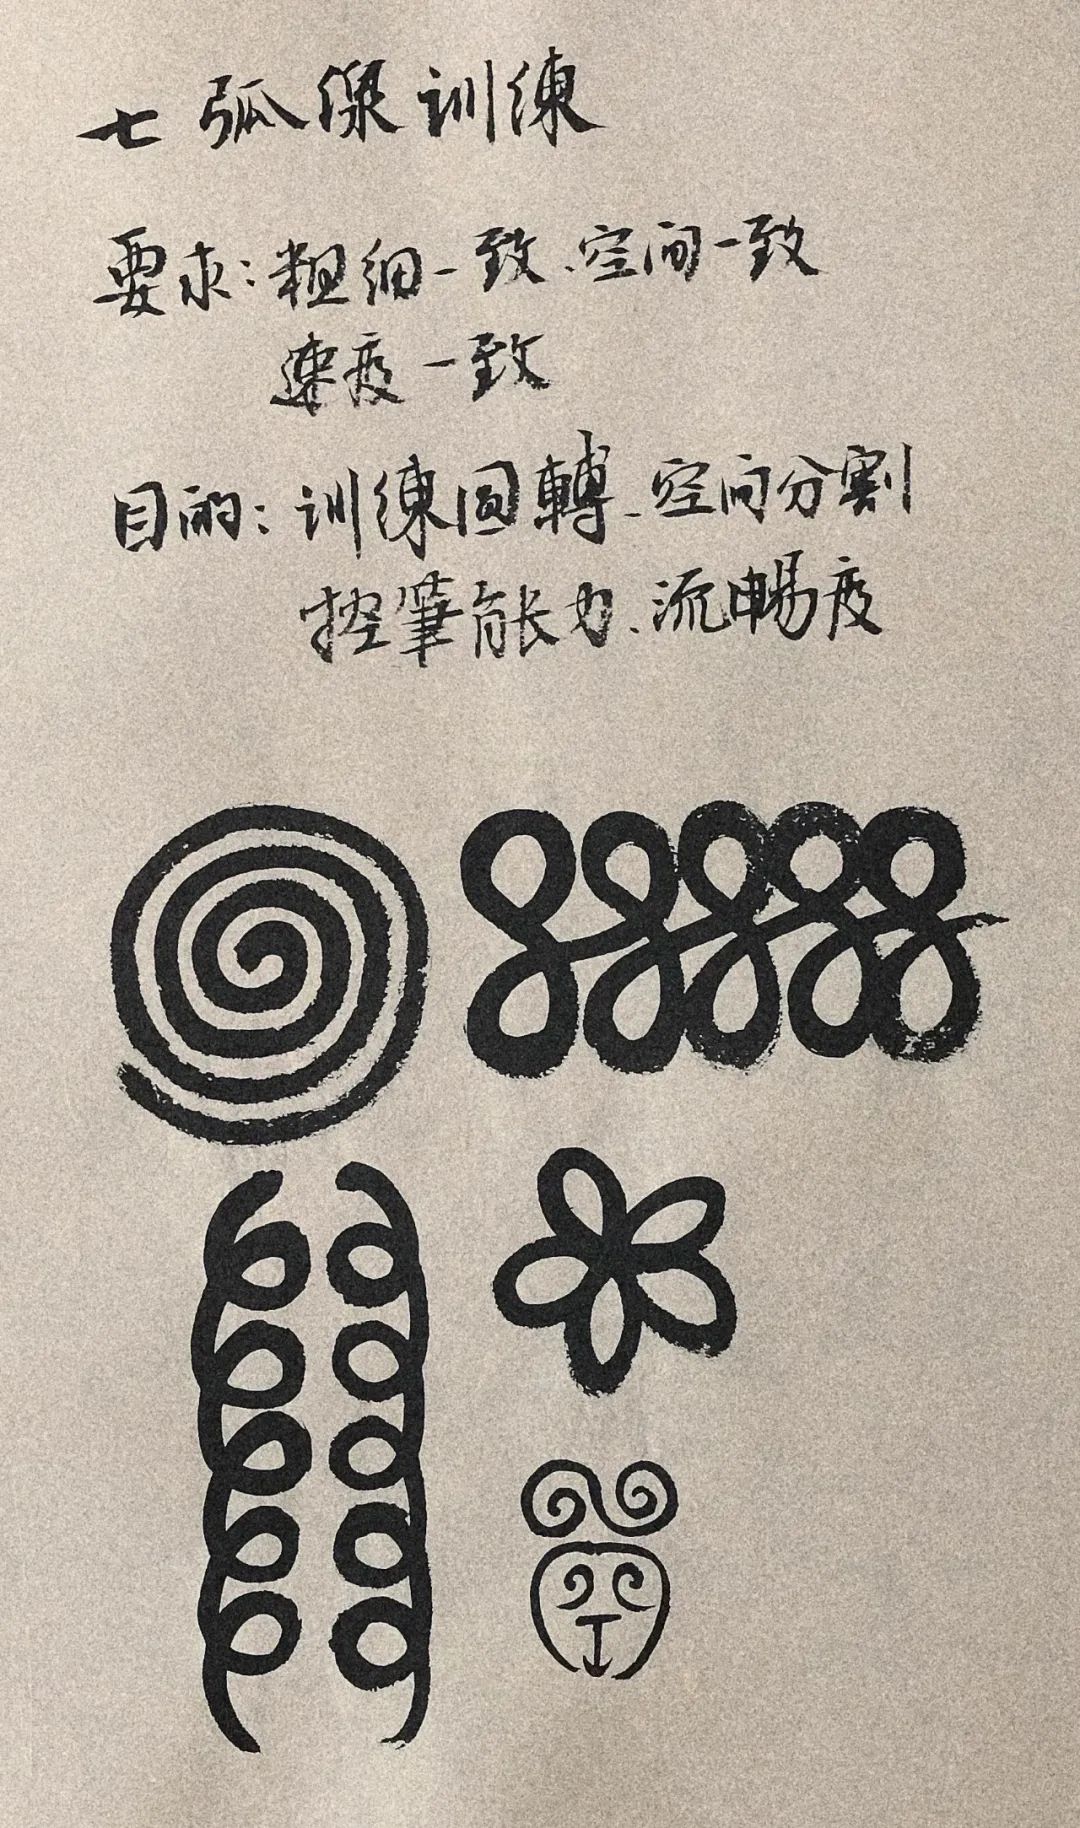 七 弧線训練
要求：粗细一致、空间一致
速度一致
目的：训練圓轉、空间分割
控筆能力、流暢度